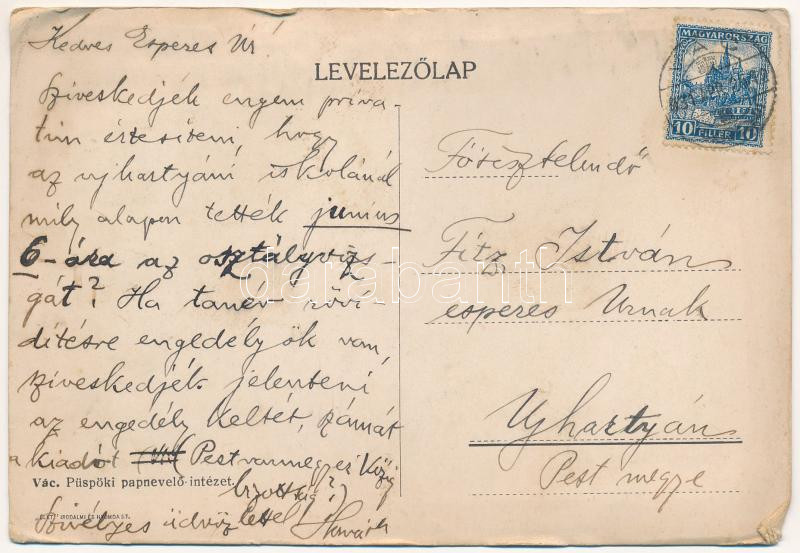 Kedves Esperes Úr
LEVELEZŐLAP
Szíveskedjék engem priva-
tim értesíteni, hogy
az ujhartyáni iskolánál
mily alapon tették junius
6-ára az osztályvizs-
gát? Ha tanév rövi-
dítésre engedélyök van,
szíveskedjék jelenteni
az engedély keltét, számát
a kiadót (Pestvarmegyei Közig
bizottság?)
Szívélyes üdvözlettel Horváth
Vác. Püspöki papnevelő-intézet.
ÉLET IRODALMI ÉS NYOMDA R.T.
MAGYARORSZÁG
10 FILLÉR 10
Főtisztelendő
Fitz István
esperes Urnak
Ujhartyán
Pest megye
darabanth